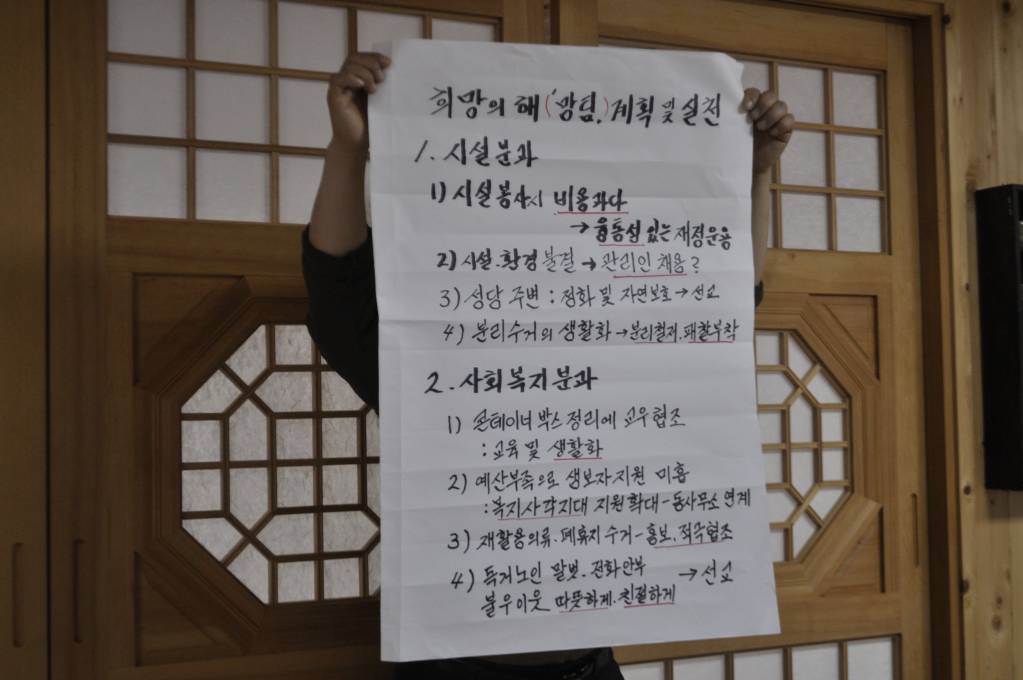 희망의 해 ('망팀,) 계획 및 실전
1. 시설분과
1) 시설봉사시 비용과다
→ 융통성 있는 재정운용
2) 시설.환경 불결 → 관리인 채용?
3) 성당 주변 : 정화 및 자연보호 → 선교
4) 분리수거의 생활화 → 분리철저.팻찰부착
2. 사회복지분과
1) 콘테이너 박스 정리에 교우 협조
: 교육 및 생활화
2) 예산부족으로 생보자 지원 미흡
: 복지사각지대 지원확대 - 동사무소 연계
3) 재활용의류.폐휴지 수거 - 홍보, 적극협조
4) 독거노인 말벗.전화안부 → 선교
불우이웃 따뜻하게.친절하게